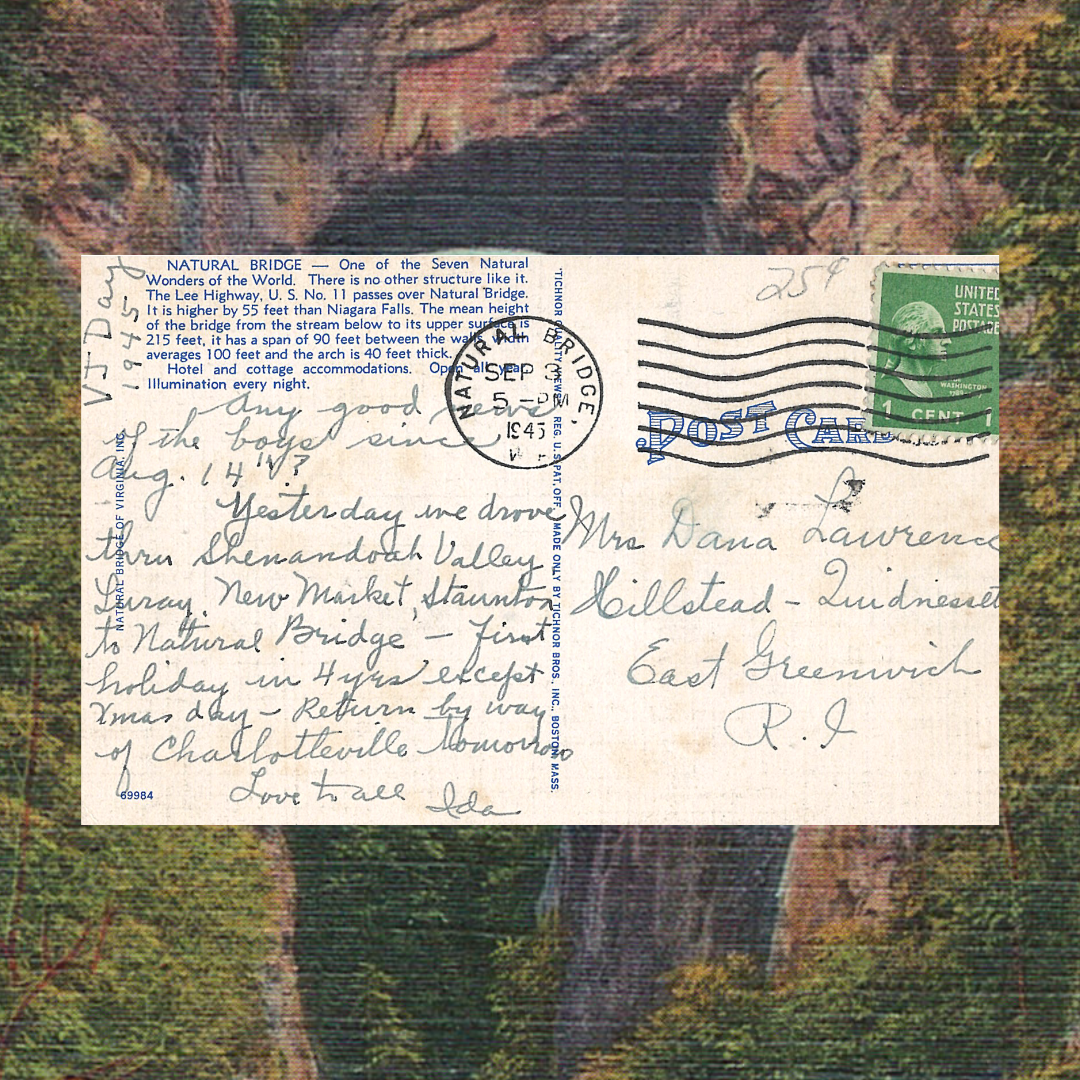 VJ Day
1945
NATURAL BRIDGE — One of the Seven Natural
Wonders of the World. There is no other structure like it.
The Lee Highway, U. S. No. 11 passes over Natural Bridge.
It is higher by 55 feet than Niagara Falls. The mean height
of the bridge from the stream below to its upper surface is
215 feet, it has a span of 90 feet between the walls, width
averages 100 feet and the arch is 40 feet thick.
Hotel and cottage accommodations. Open all year.
Illumination every night.
Any good news
of the boys since
Aug. 14th?
Yesterday we drove
thru Shenandoah Valley
Luray, New Market, Staunton
to Natural Bridge – first
holiday in 4 yrs except
Xmas day – Return by way
of Charlotteville tomorrow
Love to all Ida
69984
NATURAL BRIDGE OF VIRGINIA, INC.
TICHNOR QUALITY VIEWS, REG. U. S. PAT. OFF. MADE ONLY BY TICHNOR BROS., INC., BOSTON, MASS.
NATURAL BRIDGE,
SEP 3
5 - PM
1945
25¢
UNITED
STATES
POSTAGE
WASHINGTON
1 CENT 1
POST CARD
Mrs Dana Lawrence
Hillstead – Quidnesset
East Greenwich
R. I